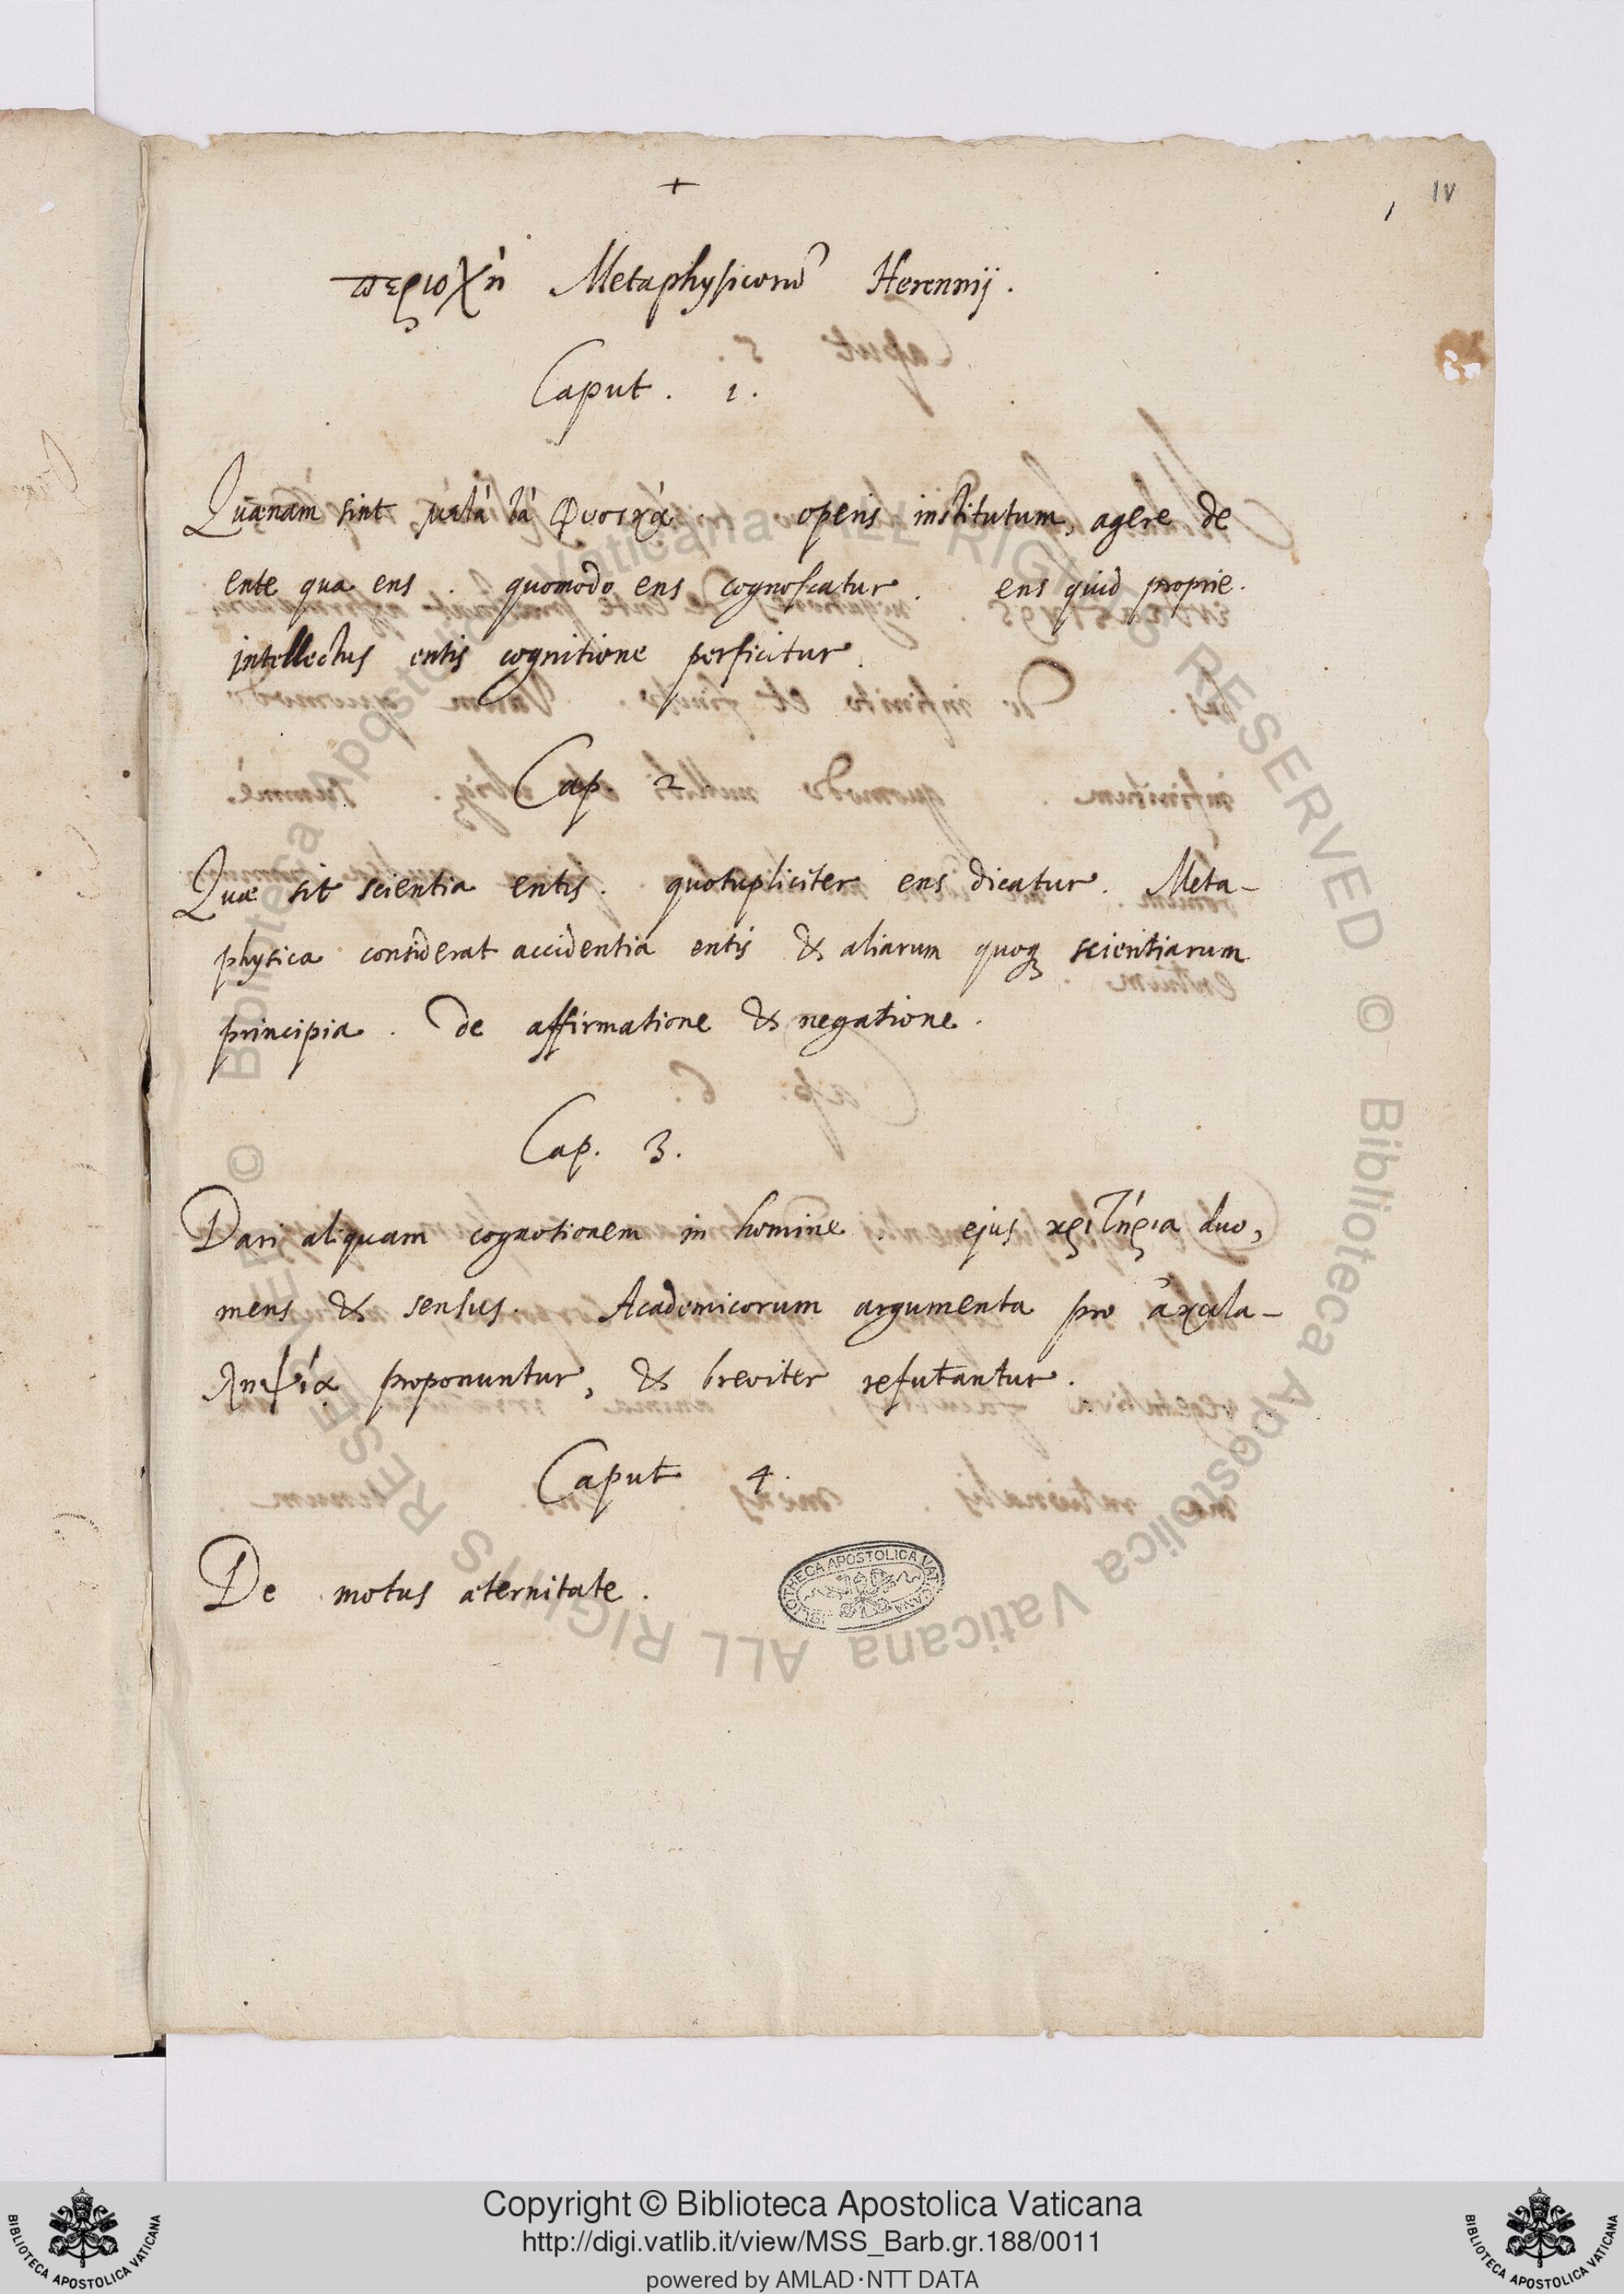 +
IV
1
περιοχὴ Metaphysicorũ Herennij.
Caput. 1.
Quænam sint μετὰ τὰ φυσικὰ. operis institutum, agere de
ente qua ens. quomodo ens cognoscatur. ens quid proprie.
intellectus entis cognitione perficitur.
Cap. 2.
Quæ sit scientia entis. quotupliciter ens dicatur. Meta-
physica considerat accidentia entis & aliarum quoq scientiarum
principia. De affirmatione & negatione.
Cap. 3.
Dari aliquam cognotionem in homine. ejus κριτήρια duo,
mens & sensus. Academicorum argumenta pro ἀκατα-
ληψίᾳ proponuntur, & breviter refutantur.
Caput 4.
De motus æternitate.
BIBLIOTHECA APOSTOLICA VATICANA
© Biblioteca Apostolica Vaticana ALL RIGHTS RESERVED © Biblioteca Apostolica Vaticana ALL RIGHTS RESERVED
Copyright © Biblioteca Apostolica Vaticana
http://digi.vatlib.it/view/MSS_Barb.gr.188/0011
powered by AMLAD·NTT DATA
BIBLIOTECA APOSTOLICA VATICANA
BIBLIOTECA APOSTOLICA VATICANA